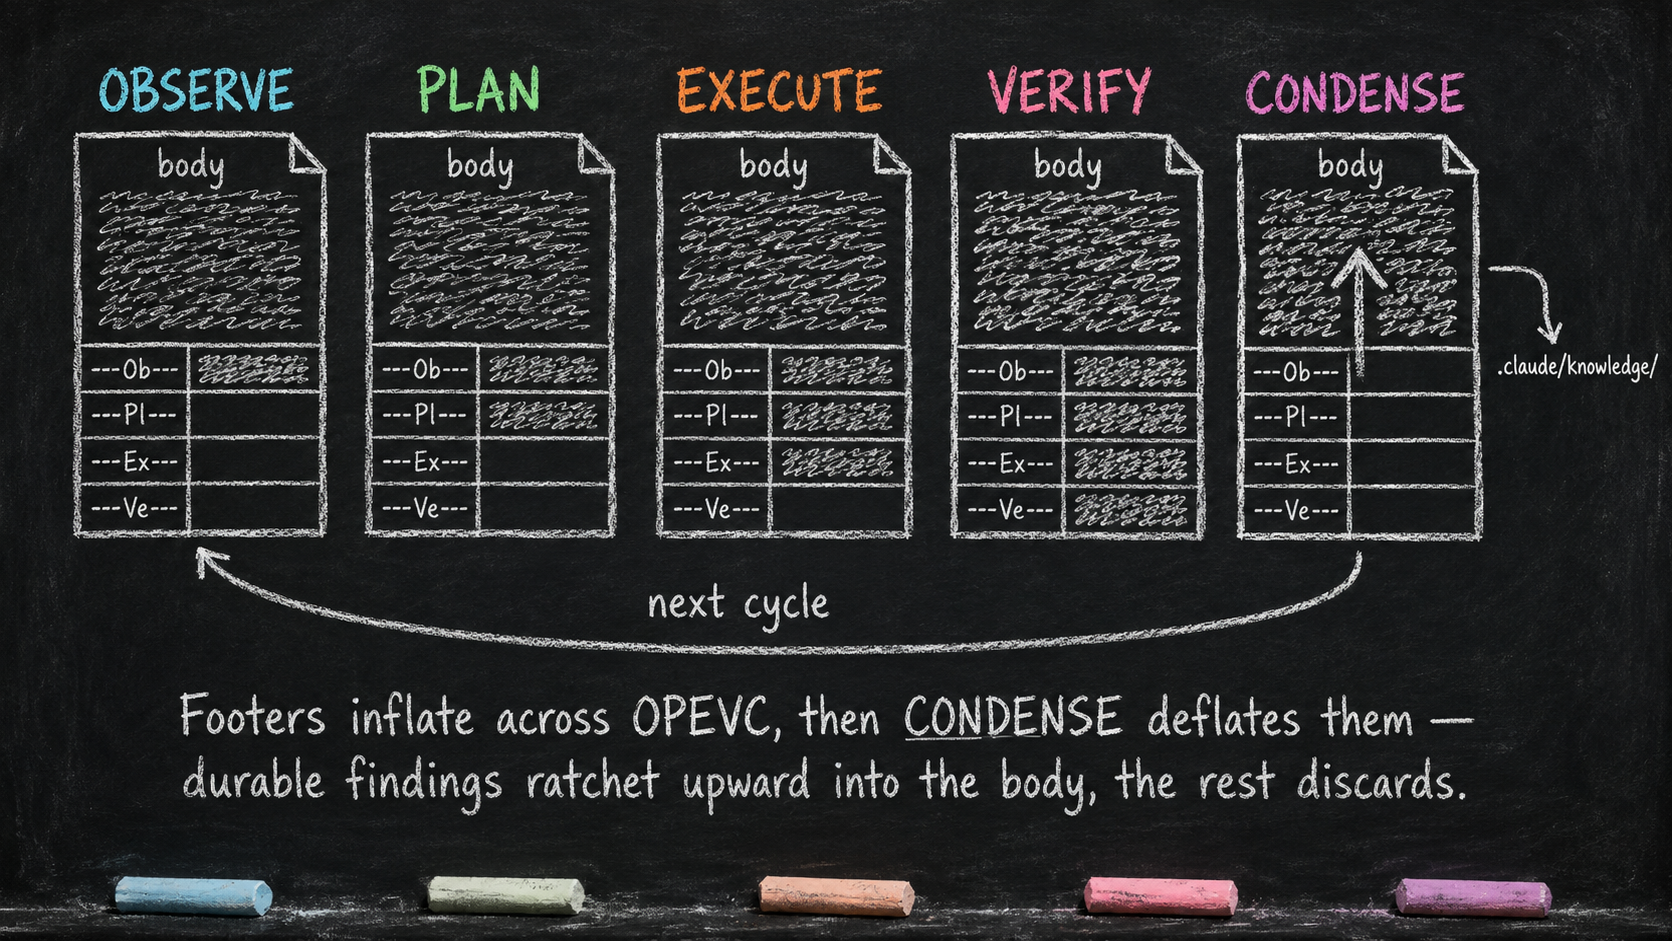 OBSERVE
PLAN
EXECUTE
VERIFY
CONDENSE
body
body
body
body
body
---Ob---
---Pl---
---Ex---
---Ve---
---Ob---
---Pl---
---Ex---
---Ve---
---Ob---
---Pl---
---Ex---
---Ve---
---Ob---
---Pl---
---Ex---
---Ve---
---Ob---
---Pl---
---Ex---
---Ve---
.claude/knowledge/
next cycle
Footers inflate across OPEVC, then CONDENSE deflates them —
durable findings ratchet upward into the body, the rest discards.